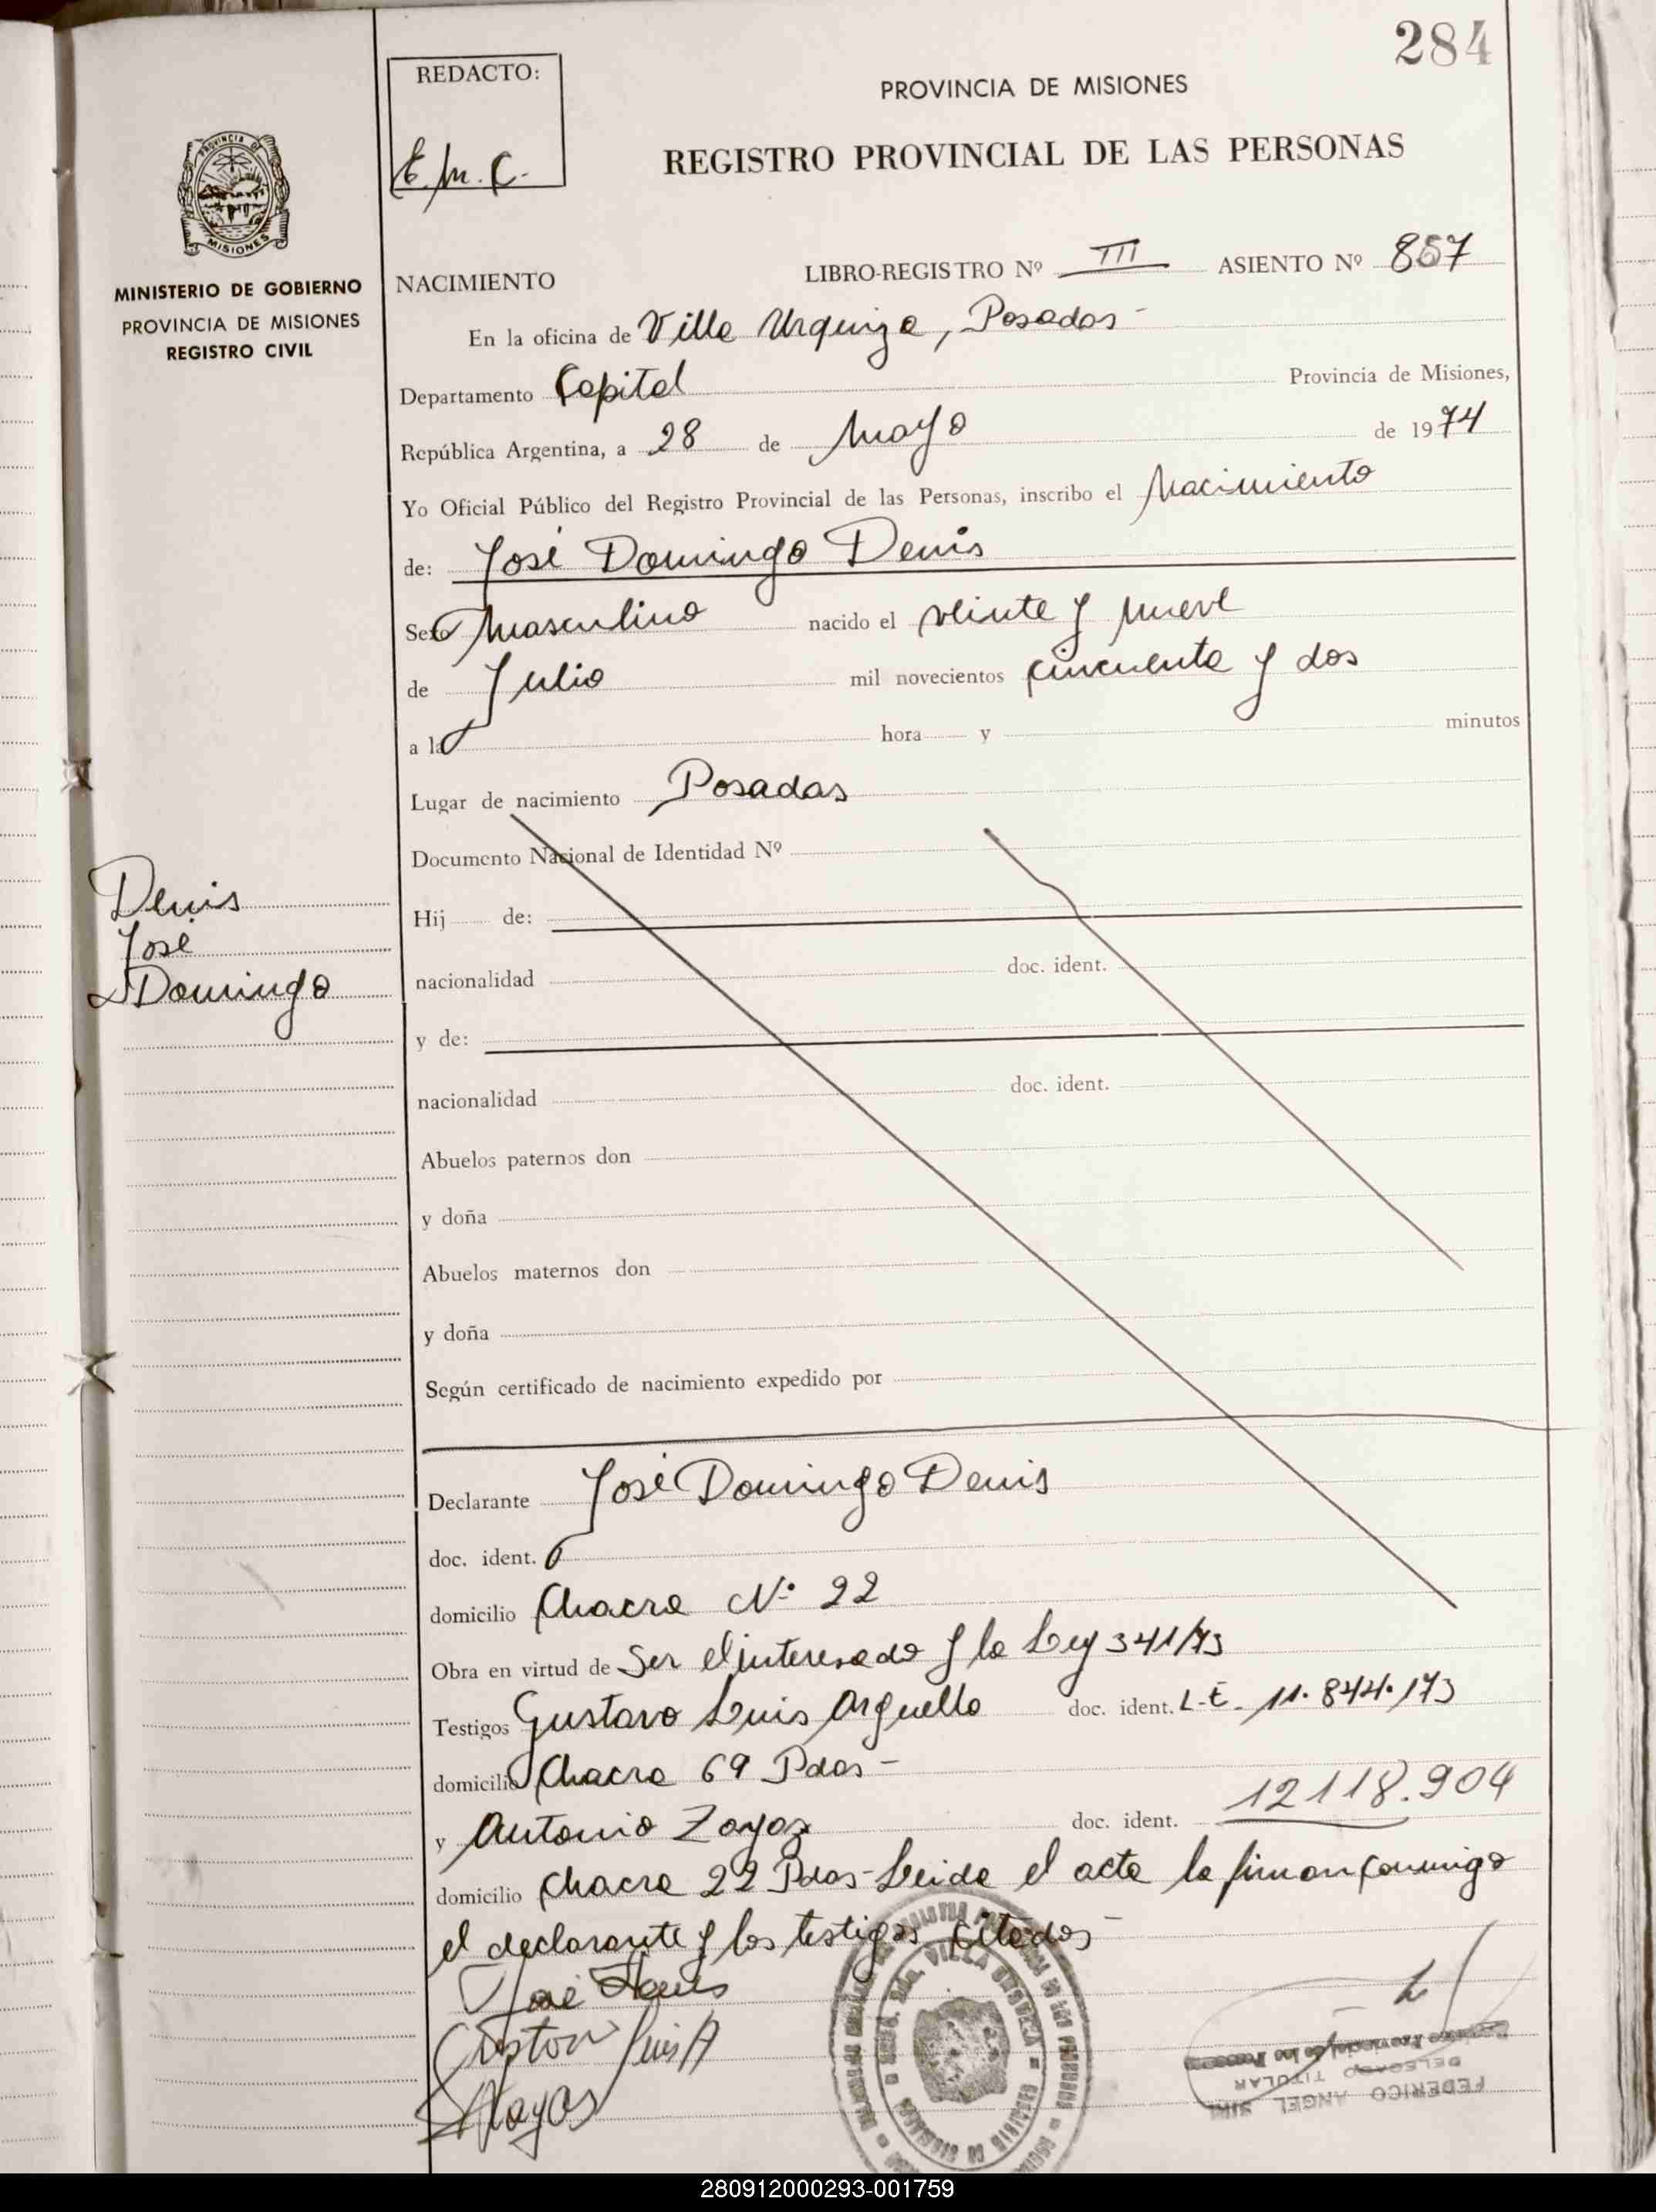 284
REDACTO:
E.M.C.
PROVINCIA DE MISIONES
REGISTRO PROVINCIAL DE LAS PERSONAS
PROVINCIA DE
MISIONES
MINISTERIO DE GOBIERNO
PROVINCIA DE MISIONES
REGISTRO CIVIL
NACIMIENTO LIBRO-REGISTRO Nº III ASIENTO Nº 857
En la oficina de Villa Urquiza, Posadas -
Departamento Capital Provincia de Misiones,
República Argentina, a 28 de Mayo de 1974
Yo Oficial Público del Registro Provincial de las Personas, inscribo el Nacimiento
de: José Domingo Denis
Sexo Masculino nacido el veinte y nueve
de Julio mil novecientos cincuenta y dos
a la hora y minutos
Lugar de nacimiento Posadas
Documento Nacional de Identidad Nº
Denis
José
Domingo
Hij de:
nacionalidad doc. ident.
y de:
nacionalidad doc. ident.
Abuelos paternos don
y doña
Abuelos maternos don
y doña
Según certificado de nacimiento expedido por
Declarante José Domingo Denis
doc. ident.
domicilio Chacra Nº 22
Obra en virtud de Ser el interesado y la Ley 341/73
Testigos Gustavo Luis Arguello doc. ident. L-E. 11.844.173
domicilio Chacra 69 Pdas -
y Antonio Zayas doc. ident. 12118.904
domicilio Chacra 22 Pdas - Leida el acta la firman conmigo
el declarante y los testigos citados -
José Denis
Gustavo Luis A
Zayas
DELEGADO TITULAR
FEDERICO ANGEL
280912000293-001759